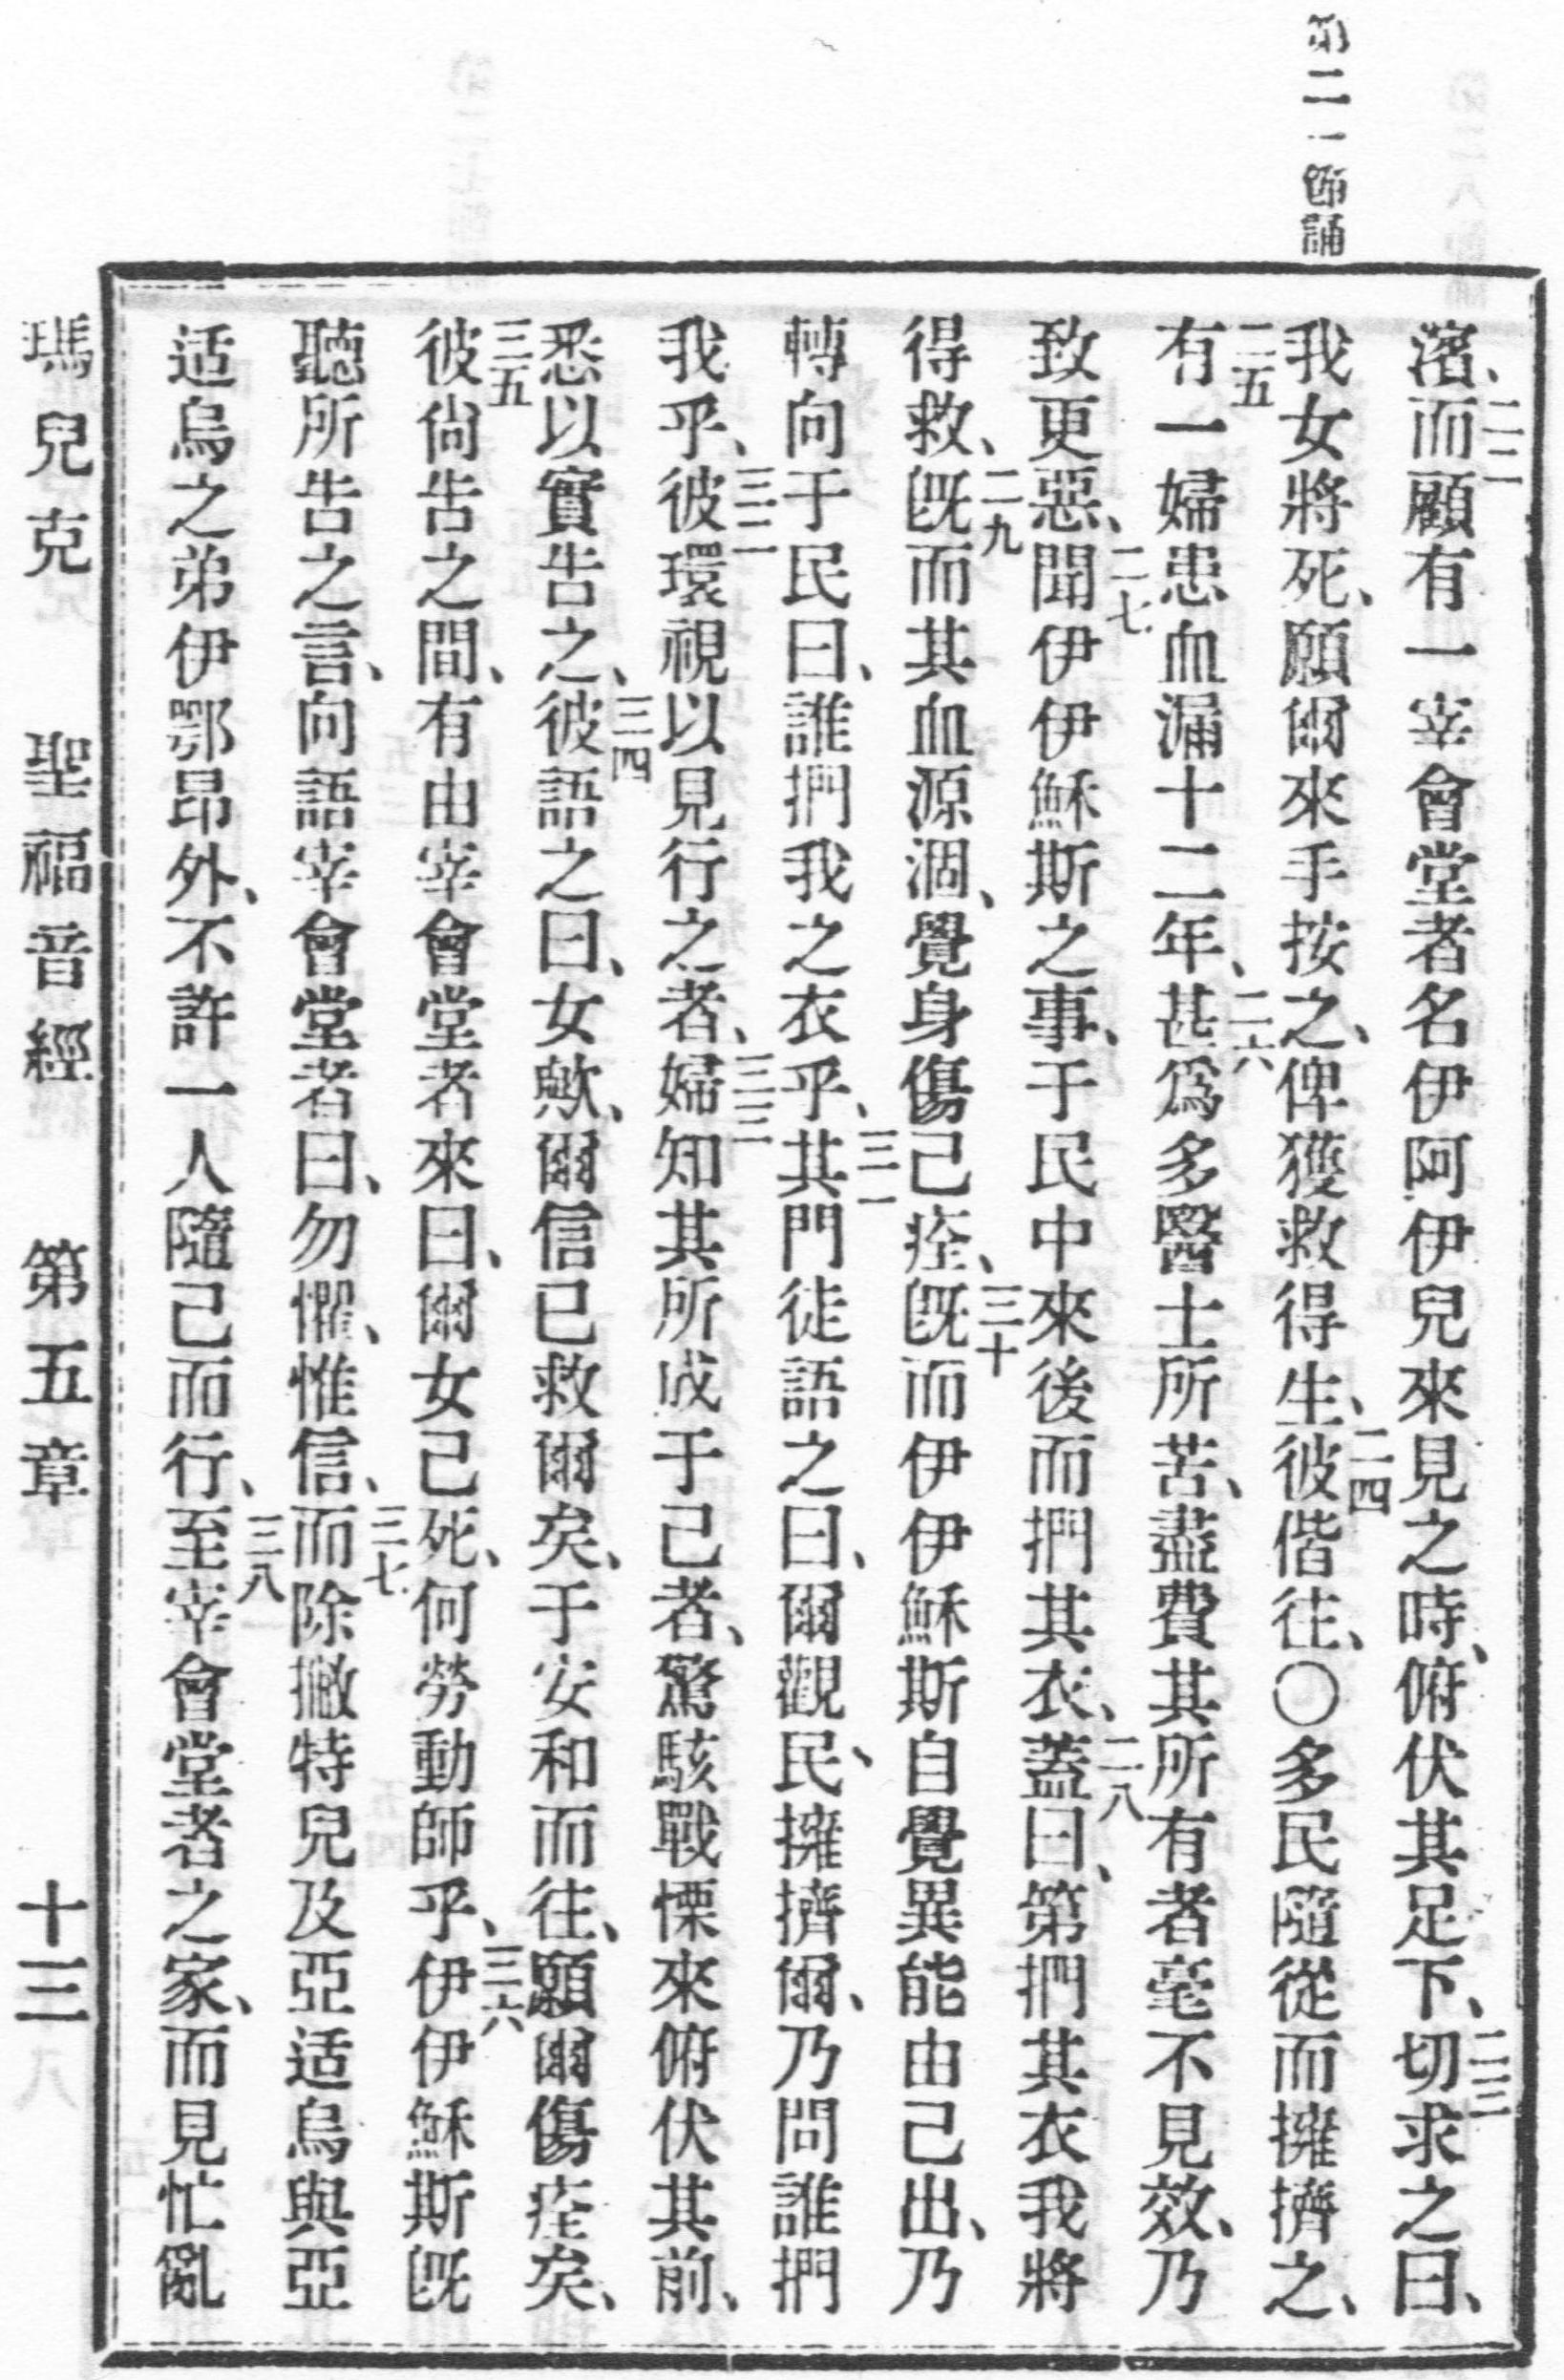 第二一節誦
濱、二二而顧有一宰會堂者名伊阿伊兒來見之時、俯伏其足下、二三切求之曰、
我女將死、願爾來手按之、俾獲救得生、二四彼偕往、〇多民隨從而擁擠之、
二五有一婦患血漏十二年、二六甚爲多醫士所苦、盡費其所有者毫不見效、乃
致更惡、二七聞伊伊穌斯之事、于民中來後而捫其衣、二八蓋曰、第捫其衣我將
得救、二九旣而其血源涸、覺身傷己痊、三十旣而伊伊穌斯自覺異能由己出、乃
轉向于民曰、誰捫我之衣乎、三一其門徒語之曰、爾觀民、擁擠爾、乃問誰捫
我乎、三二彼環視以見行之者、三三婦知其所成于己者、驚駭戰慄來俯伏其前、
悉以實告之、三四彼語之曰、女歟、爾信已救爾矣、于安和而往、願爾傷痊矣、
三五彼尙告之間、有由宰會堂者來曰、爾女己死、何勞動師乎、三六伊伊穌斯旣
聽所告之言、向語宰會堂者曰、勿懼、惟信、三七而除撇特兒及亞适烏與亞
适烏之弟伊鄂昻外、不許一人隨己而行、三八至宰會堂者之家、而見忙亂
瑪兒克 聖福音經 第五章 十三